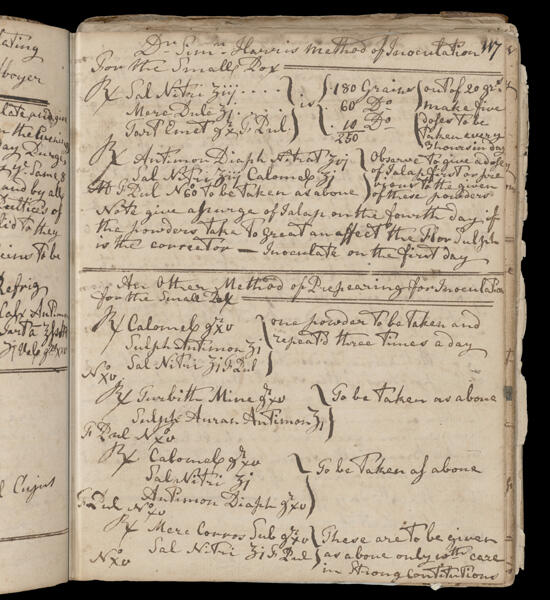 Dr Simn Harris method of Inoculation 117
For the Small Pox
℞ Sal Nitri ʒiij .... } is { 180 Grains { out of 20 grs
Merc Dulc ʒi .... 60 Do make five
Tart Emet gr x F Pul 10 Do doses to be
250 Taken every
3 hours in day
℞ Antimon Diaph Nitrat ʒvj } Observe to give a dose
Sal Nitri ʒiij Calomelo ʒi of Jalap first or pre
F Pul No 60 to be taken as above vious to the given
of these powders
Note give a purge of Jalap on the fourth day if
the powders take to Great an affect the Flor Sulph
is the corrector — Inoculate on the first day
An Other Method of Prepearing for Inoculation
for the Small Pox
℞ Calomelo gr xv } one powder to be taken and
Sulph Antimon ʒi repeatd three times a day
Sal Nitri ʒi F Pul
No xv
℞ Turbith Mine gr xv } To be taken as above
Sulph Auran Antimon ʒi
F Pul No xv
℞ Calomelo gr xv
Sal Nitri ʒi } To be Taken as above
Antimon Diaph gr xv
F Pul No xv
℞ Merc Corros Sub gr xv { These are to be given
Sal Nitri ʒi F Pul as above only wth care
No xv in Strong Constitutions
ating
Boyer
and by all
they
to be
Refrig
Calx Antimon